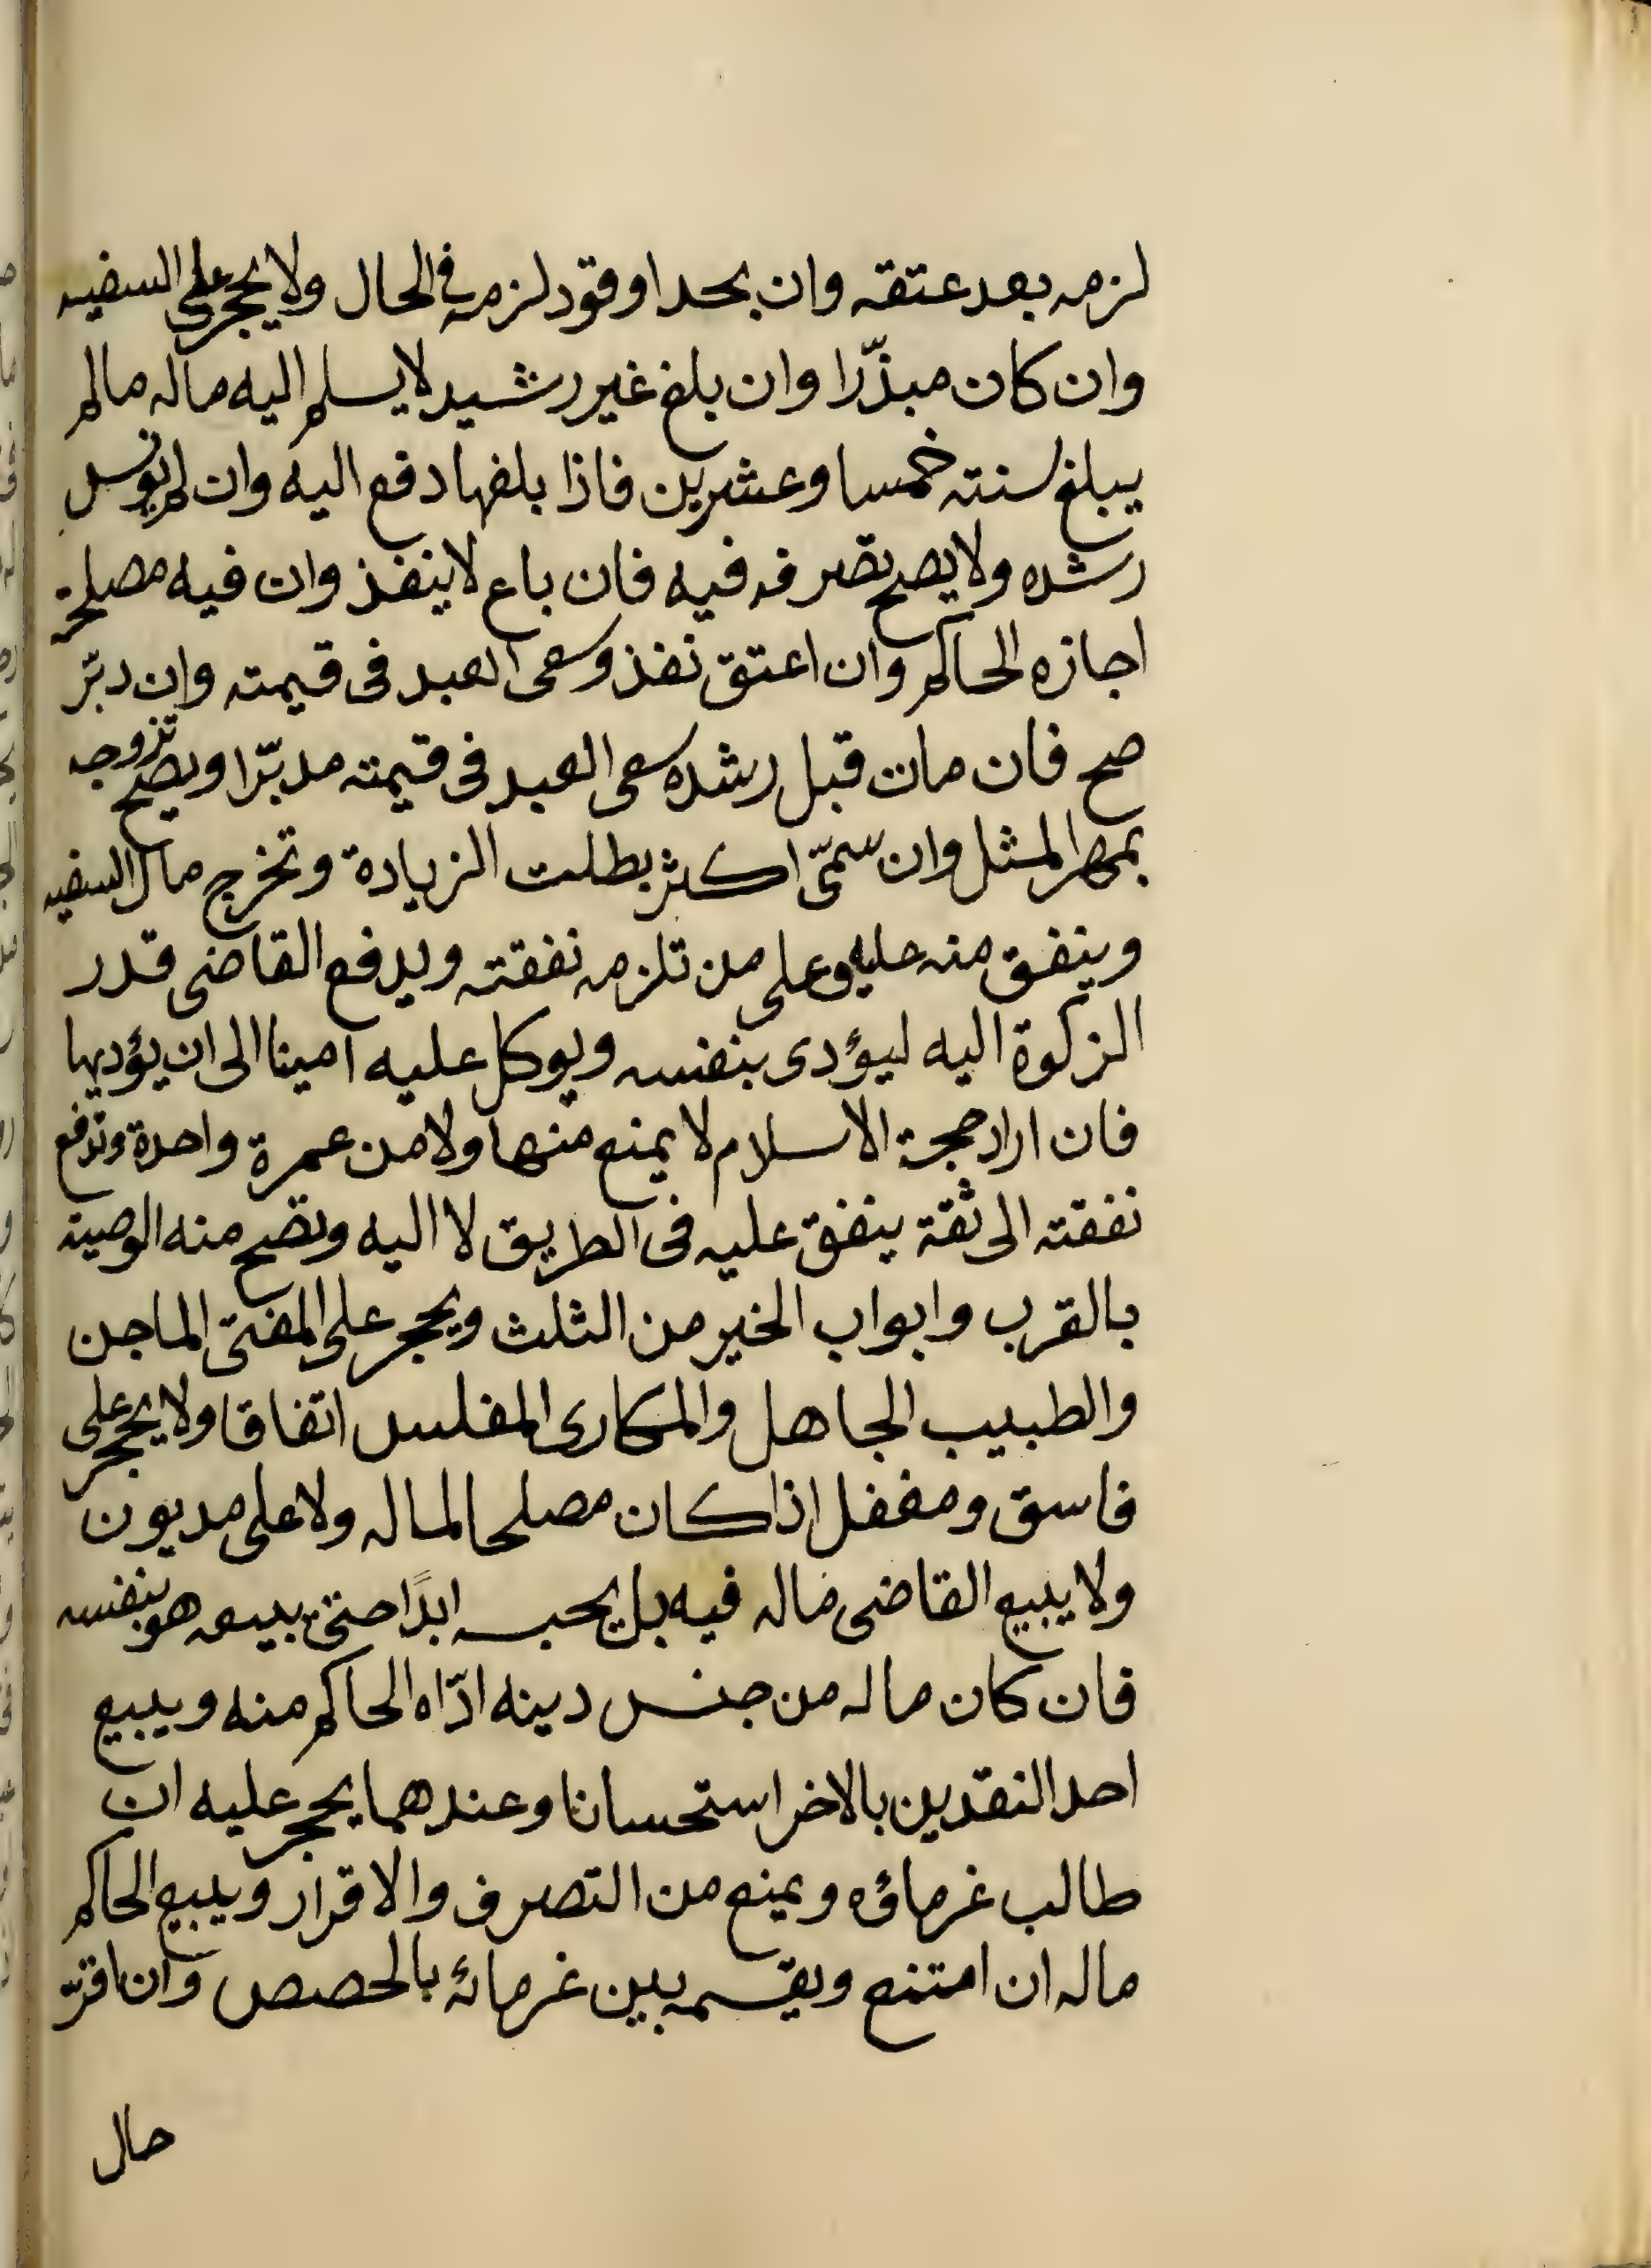 لزمه بعد عتقه وان بحد او قود لزمه فى الحال ولا يحجر على السفيه
وان كان مبذّرا وان بلغ غير رشيد لا يسلم اليه ماله مالم
يبلغ سنته خمسا وعشرين فاذا بلغها دفع اليه وان لم يونس
رشده ولا يصح تصرفه فيه فان باع لا ينفذ وان فيه مصلحة
اجازه الحاكم وان اعتق نفذ وسعى العبد فى قيمته وان دبّر
صح فان مات قبل رشده سعى العبد فى قيمته مدبّرا ويصح تزوجه
بمهر المثل وان سمّى اكثر بطلت الزيادة وتخرج مال السفيه
وينفق منه عليه وعلى من تلزمه نفقته ويدفع القاضى قدر
الزكوة اليه ليؤدى بنفسه ويوكل عليه امينا الى ان يؤديها
فان اراد حجة الاسلام لا يمنع منها ولا من عمرة واحدة وتدفع
نفقته الى ثقة ينفق عليه فى الطريق لا اليه وتصح منه الوصية
بالقرب وابواب الخير من الثلث ويحجر على المفتى الماجن
والطبيب الجاهل والمكارى المفلس اتفاقا ولا يحجر على
فاسق ومغفل اذا كان مصلحا لماله ولا على مديون
ولا يبيع القاضى ماله فيه بل يحبسه ابدًا حتى يبيعه هو بنفسه
فان كان ماله من جنس دينه ادّاه الحاكم منه ويبيع
احد النقدين بالاخر استحسانا وعندهما يحجر عليه ان
طالب غرماؤه ويمنع من التصرف والاقرار ويبيع الحاكم
ماله ان امتنع ويقسمه بين غرمائه بالحصص وان اقرّ
حال